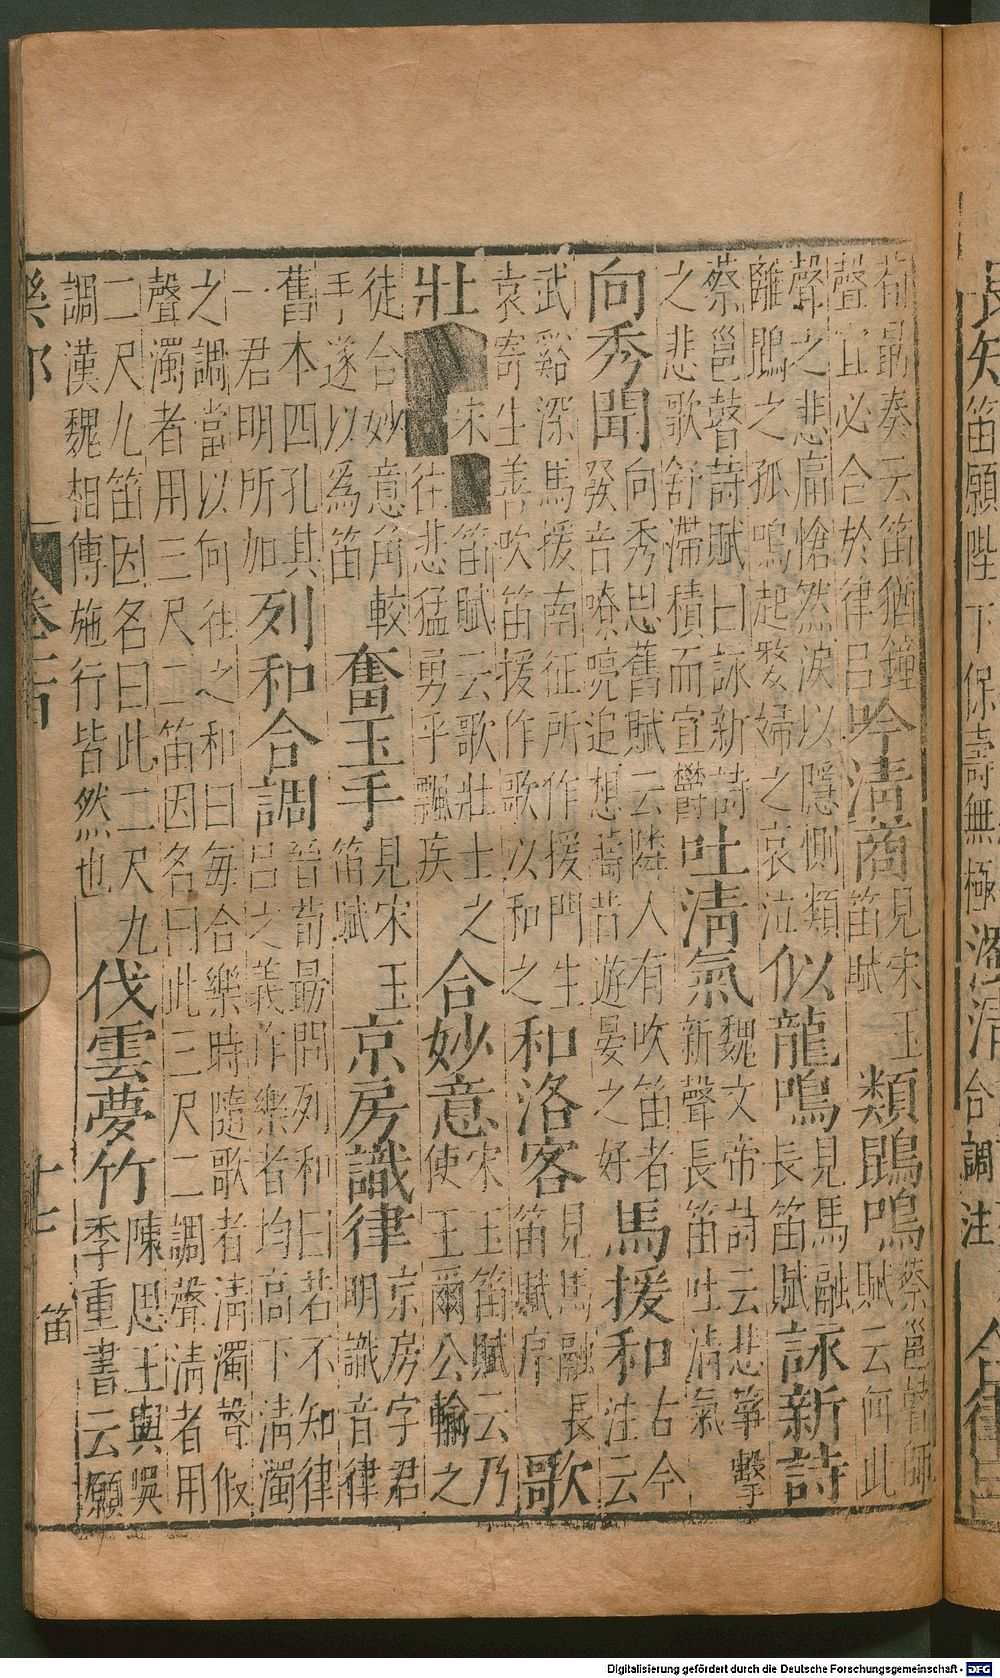 長笛願陛下保壽無極
合調注
荀勗奏云笛猶鐘
聲宜必合於律呂
吟清商
見宋玉
笛賦
類鵾鳴
蔡邕瞽師
賦云何此
聲之悲痛愴然淚以隱惻類
離鵾之孤鳴起嫠婦之哀泣
似龍鳴
見馬融
長笛賦
詠新詩
蔡邕瞽詩賦曰詠新詩
之悲歌舒滯積而宣鬱
吐清氣
魏文帝詩云悲箏擊
新聲長笛吐清氣
向秀聞
向秀思舊賦云隣人有吹笛者
發音嘹喨追想曩昔遊宴之好
馬援和
古今
注云
武谿深馬援南征所作援門生
袁寄生善吹笛援作歌以和之
和洛客
見馬融長
笛賦序
歌
壯
宋 笛賦云歌壯士之
往悲猛勇乎飄疾
合妙意
宋玉笛賦云乃
使王爾公輸之
徒合妙意角較
手遂以為笛
奮玉手
見宋玉
笛賦
京房識律
京房字君
明識音律
舊本四孔其
一君明所加
列和合調
晉荀勗問列和曰若不知律
呂之義作樂者均高下清濁
之調當以何往之和曰每合樂時隨歌者清濁聲假
聲濁者用三尺二笛因名曰此三尺二調聲清者用
二尺九笛因名曰此二尺九
調漢魏相傳施行皆然也
伐雲夢竹
陳思王與吳
季重書云願
樂部
十七
笛
Digitalisierung gefördert durch die Deutsche Forschungsgemeinschaft - DFG